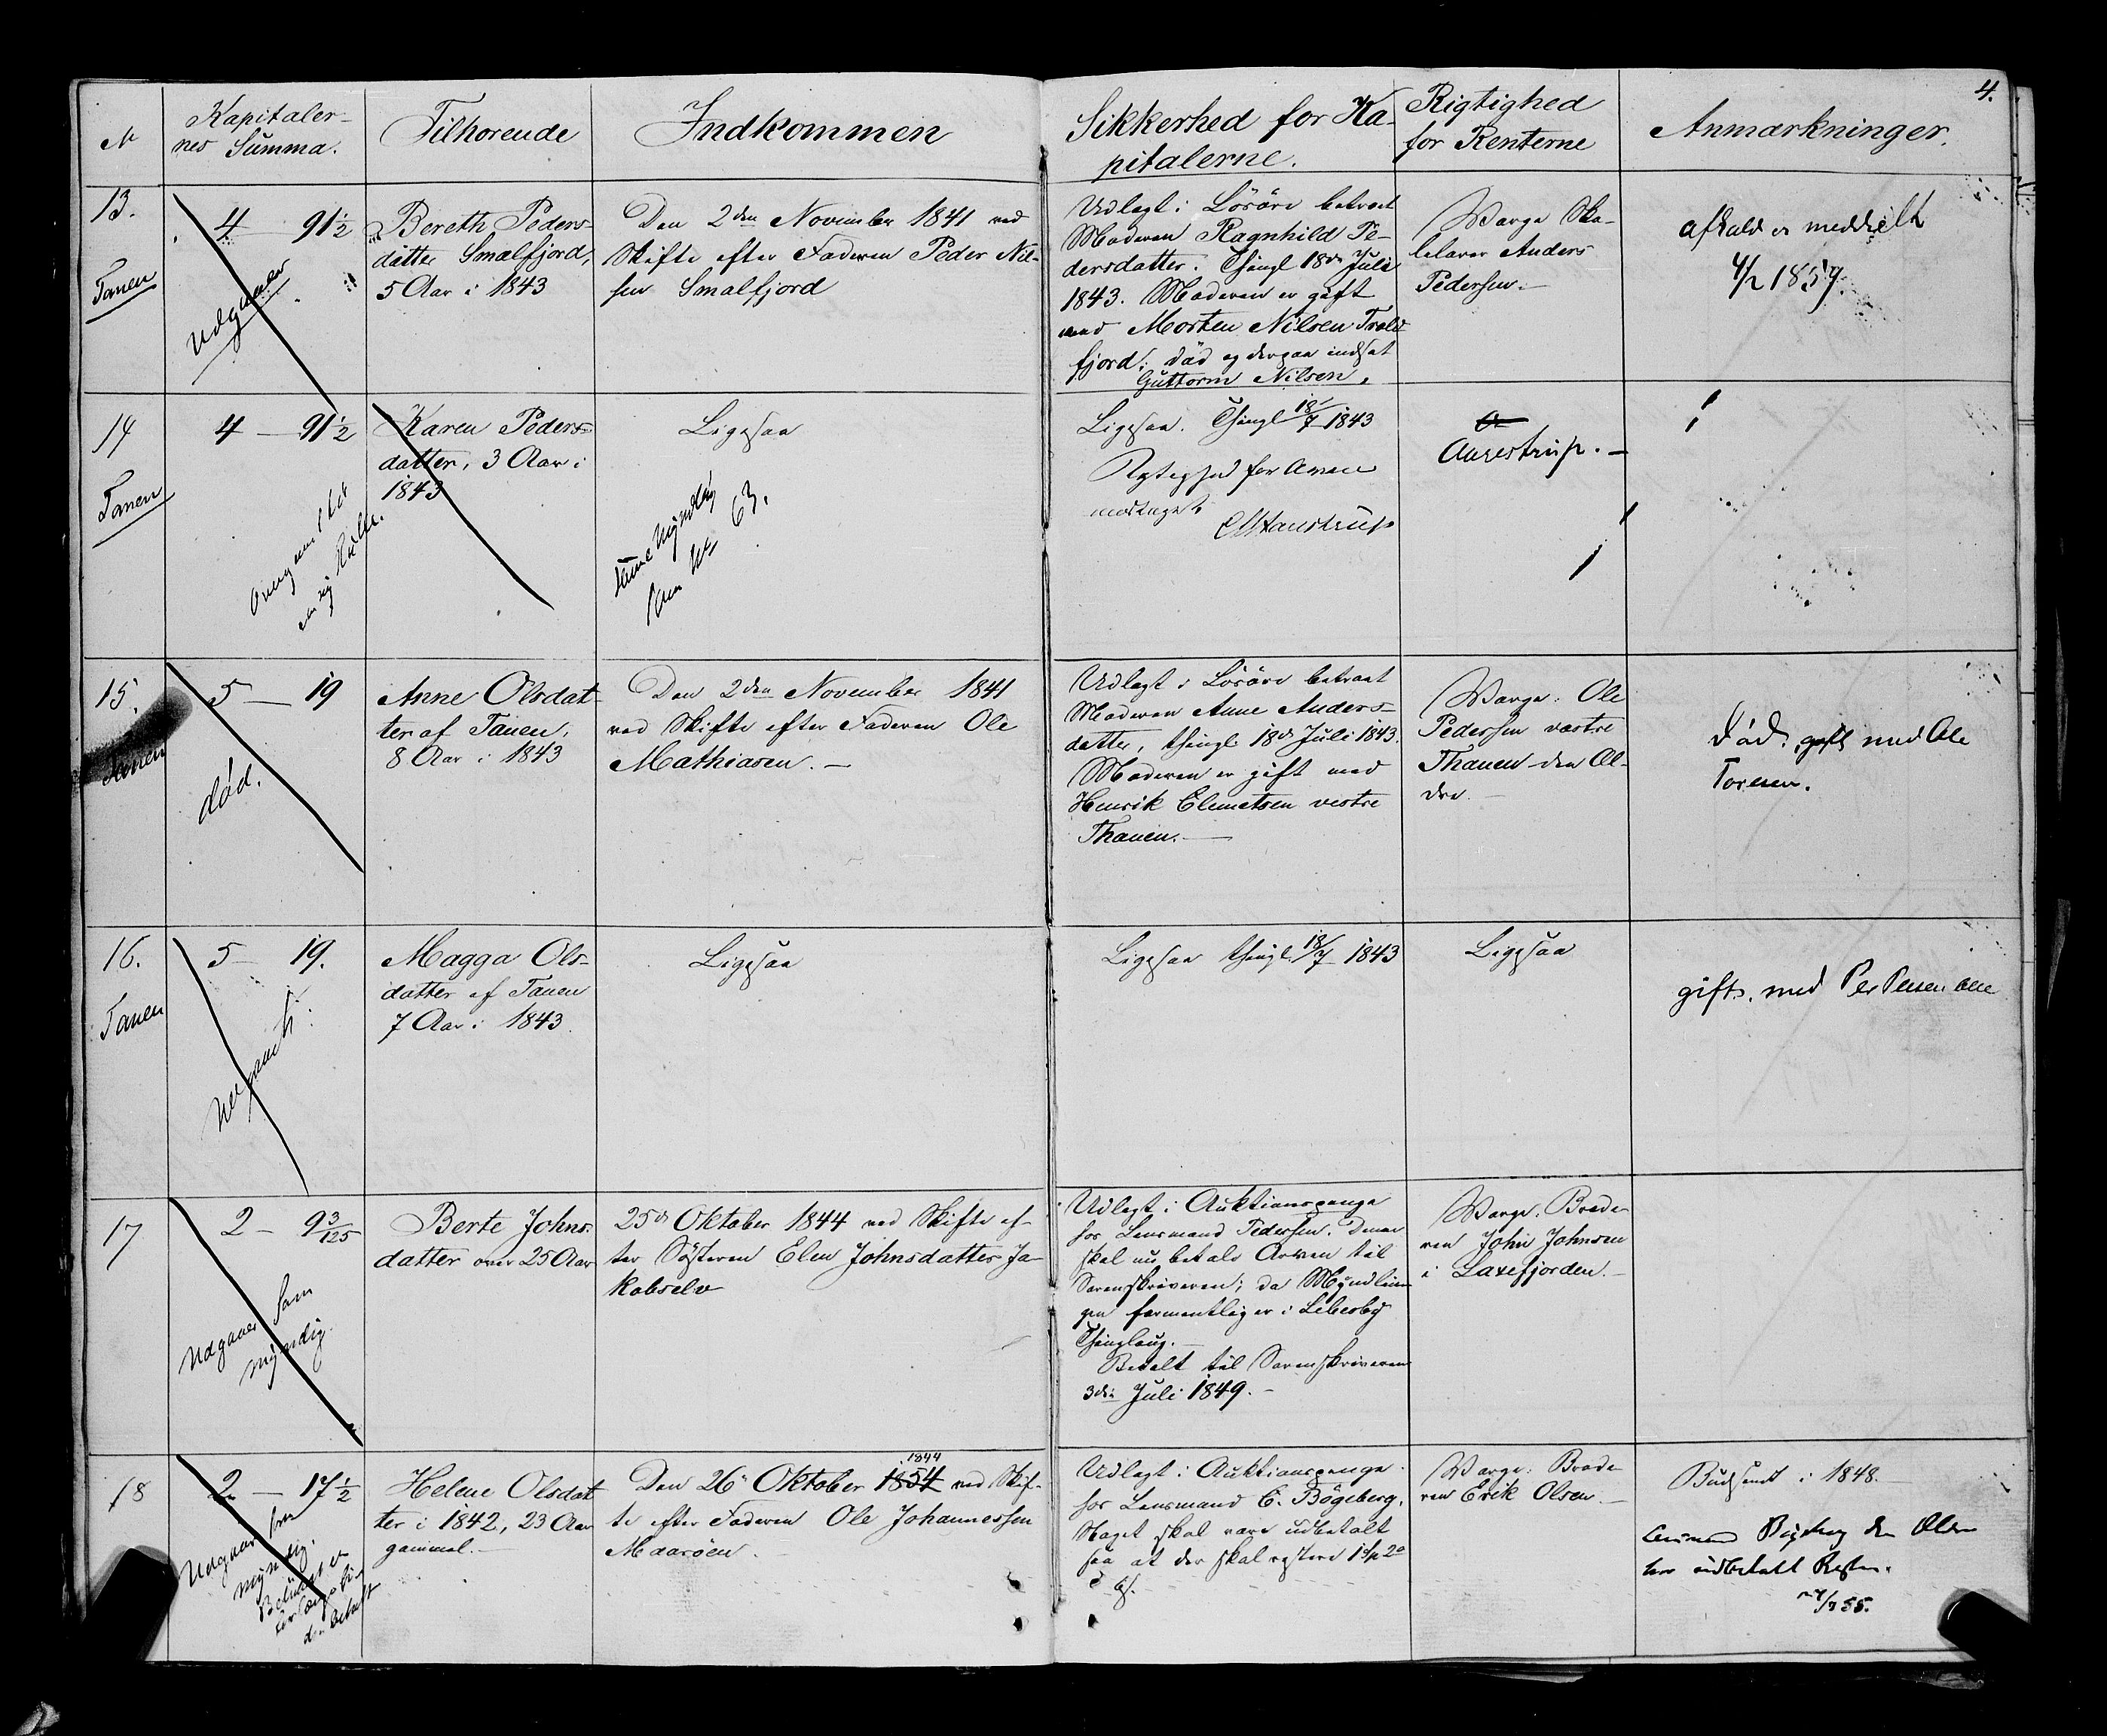 4.
№
Kapitaler-
nes Summa.
Tilhørende
Indkommen
Sikkerhed for Ka-
pitalerne.
Rigtighed
for Renterne
Anmærkninger.
13.
Tanen
4 — 91½
Udgaaer
Bereth Peders-
datter Smalfjord,
5 Aar i 1843
Den 2den November 1841 ved
Skifte efter Faderen Peder Nil-
sen Smalfjord
Udlagt i Løsøre betroet
Moderen Ragnhild Pe-
dersdatter. Thingl 18de Juli
1843. Moderen er gift
med Morten Nilsen Trold
fjord; død og derpaa indsat
Guttorm Nilsen.
Værge Sko-
lelærer Anders
Pedersen.—
afkald er meddelt
4/2 1859.
14
Tanen
4 — 91½
Karen Peders-
datter, 3 Aar i
1843
Ligesaa
63.
Ligesaa. Thingl 18/7 1843
Rigtighed for Arven
modtaget
Aarestrup.—
15.
Tanen
5 — 19
død.
Anne Olsdat-
ter af Tanen,
8 Aar i 1843
Den 2den November 1841
ved Skifte efter Faderen Ole
Mathiasen.—
Udlagt i Løsøre betroet
Moderen Anne Anders-
datter, thingl. 18de Juli 1843.
Moderen er gift med
Henrik Clemetsen vestre
Thanen.—
Værge: Ole
Pedersen vestre
Thanen den Æl-
dre.—
død. gift med Ole
Toresen.
16.
Tanen
5 — 19.
Magga Ols-
datter af Tanen
7 Aar i 1843.
Ligesaa
Ligesaa thingl. 18/7 1843
Ligesaa
gift. med Per
17
2 — 9 3/125
Udgaaer som
myndig.
Berte Johns-
datter over 25 Aar
25de Oktober 1844 ved Skifte ef-
ter Søsteren Elen Johnsdatter Ja-
kobselv
Udlagt i Auktionspenge
hos Lensmand Pedersen. Denne
skal nu betale Arven til
Sorenskriveren; da Myndlin-
gen formentlig er i Lebesby
Thinglaug.—
Betalt til Sorenskriveren
3die Juli 1849.—
Værge. Brode-
ren John Johnsen
i Laxefjorden.—
18
2 — 17½
Udgaaer som
myndig.
Beløbet er
forlængst
betalt
Helene Olsdat
ter i 1842, 23 Aar
gammel.—
1844
Den 26de Oktober 1854 ved Skif-
te efter Faderen Ole Johannessen
Maarøen.
Udlagt i Auktionspenge
hos Lensmand C. Bøgeberg.
Noget skal være udbetalt
saa at der skal restere 1 Sp 2
Værge: Brode
ren Erik Olsen.—
Budsendt i 1848.
har udbetalt Resten.